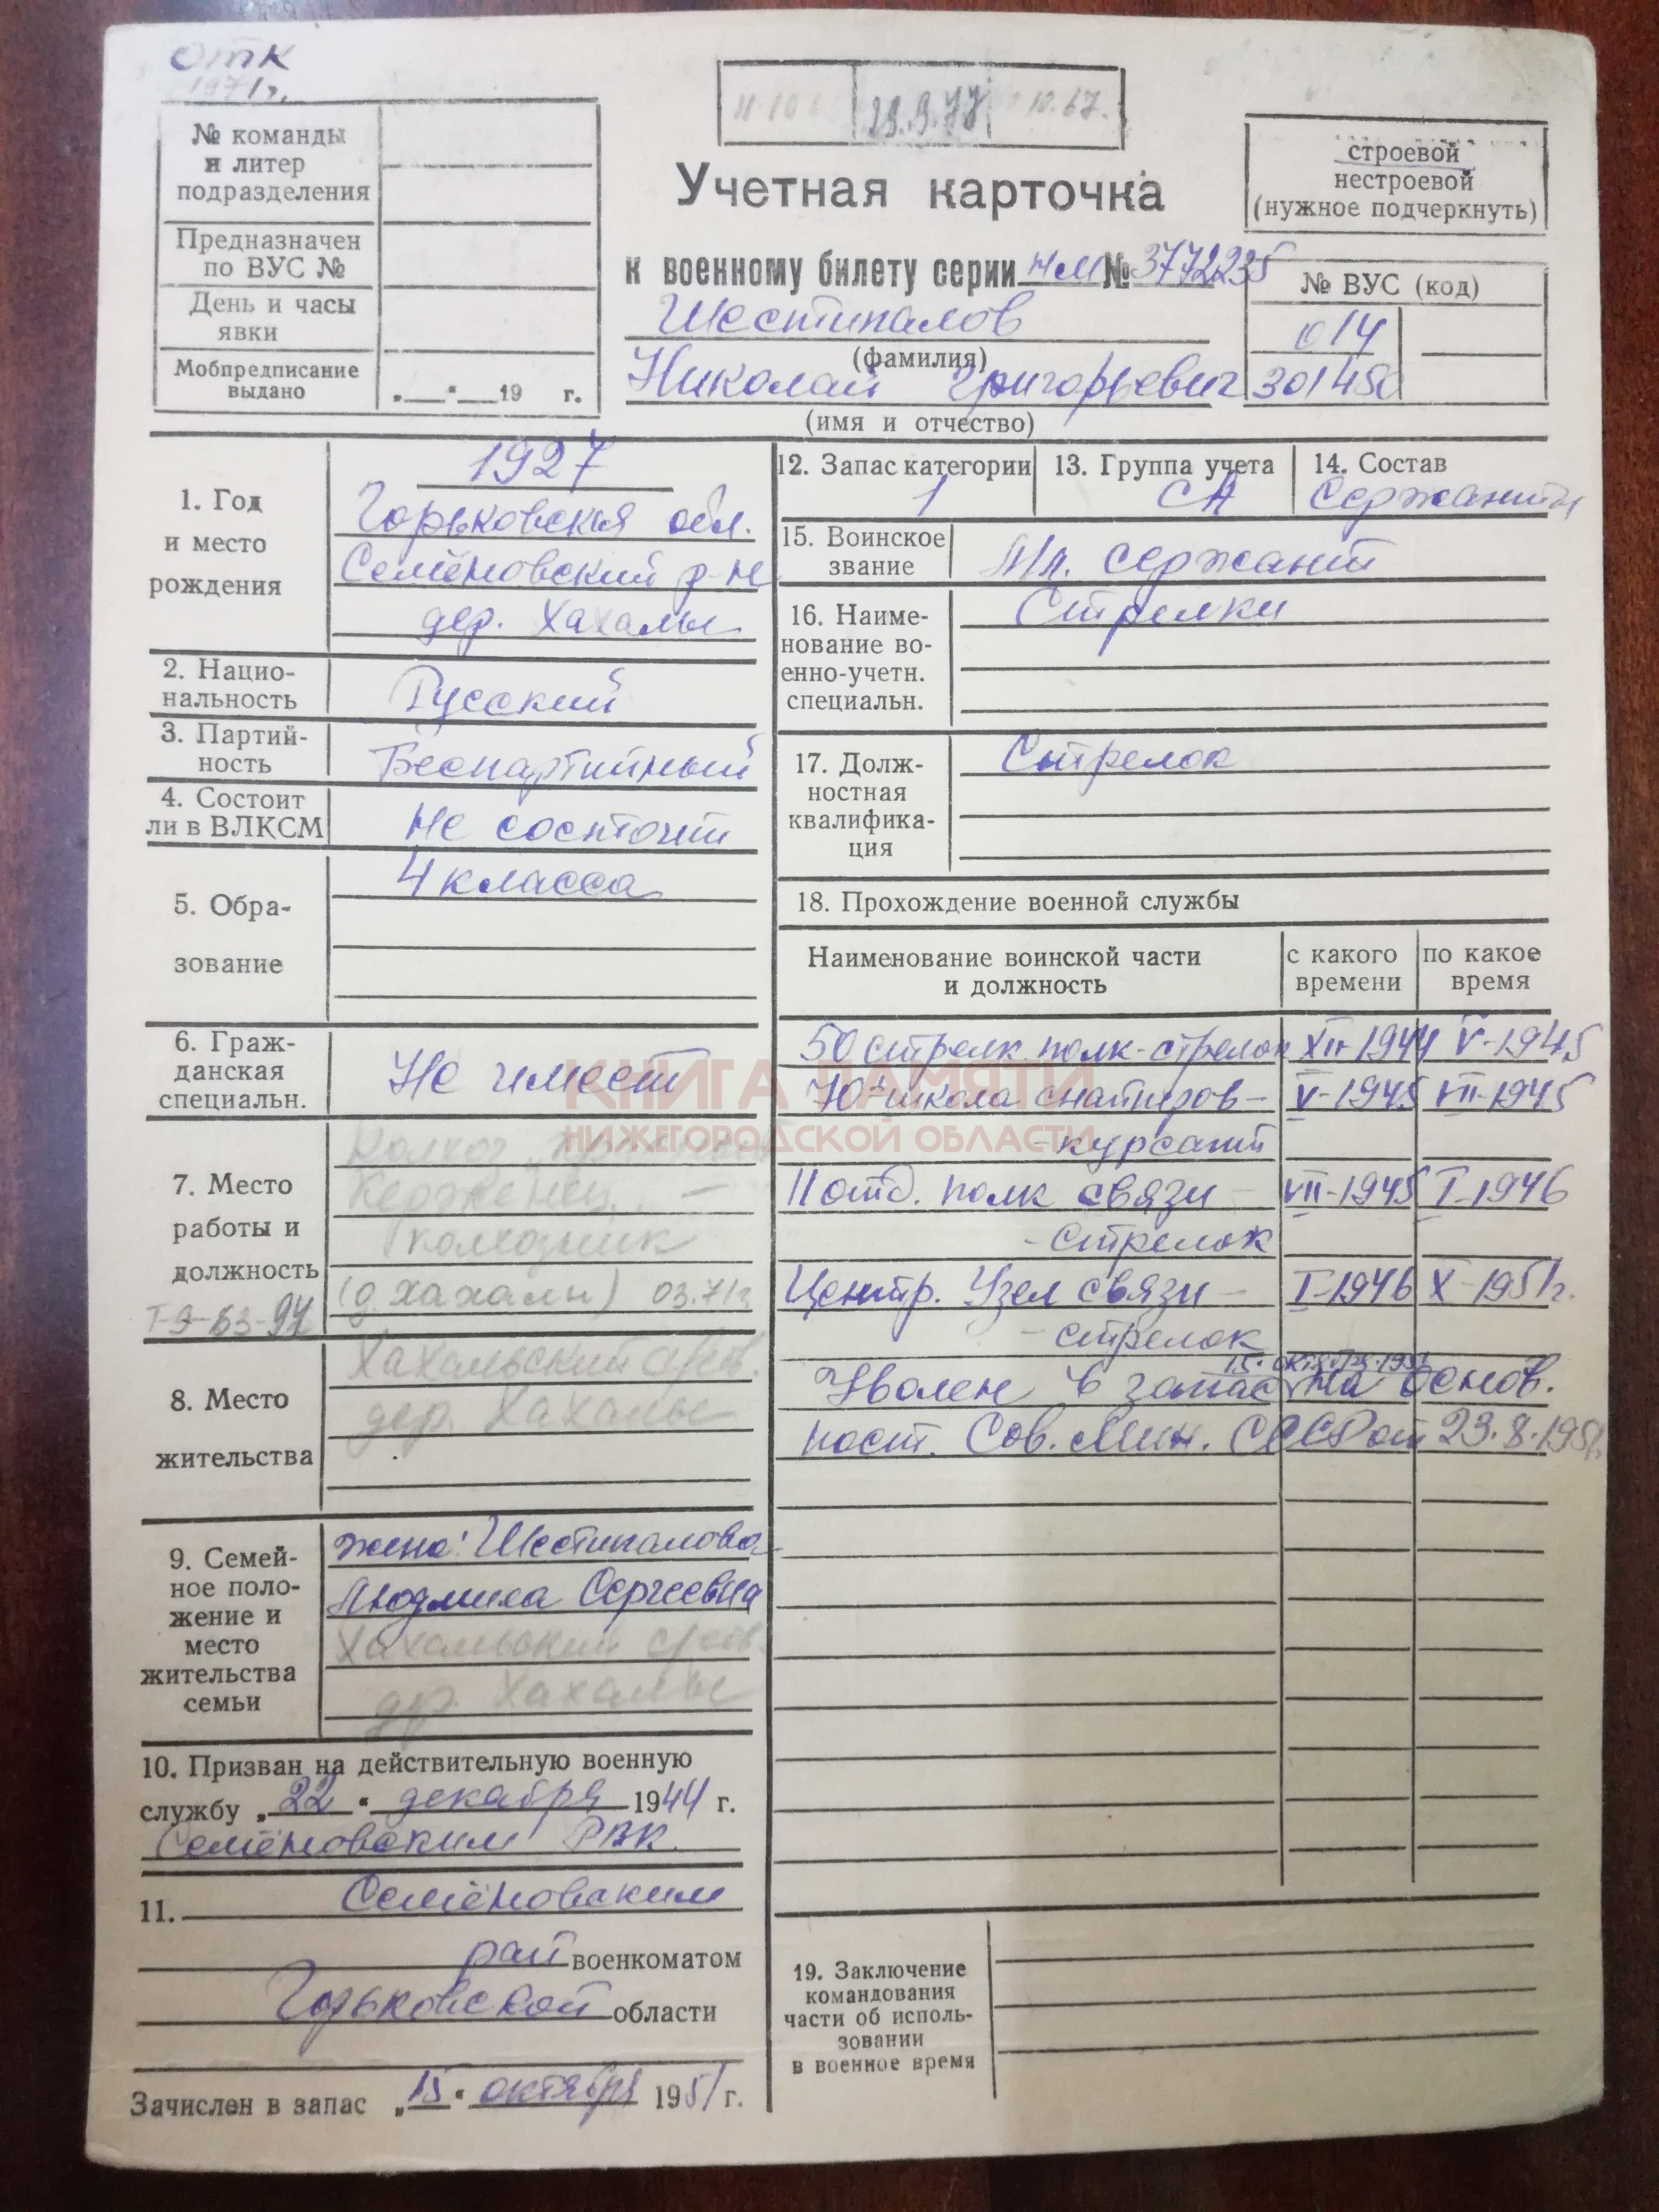 ОТК
1971г.
29.9.77
10.67.
№ команды
и литер
подразделения
Предназначен
по ВУС №
День и часы
явки
Мобпредписание
выдано
„ “ 19 г.
Учетная карточка
к военному билету серии НМ № 3772235
Шестипалов
(фамилия)
Николай Григорьевич
(имя и отчество)
строевой
нестроевой
(нужное подчеркнуть)
№ ВУС (код)
014
301450
1. Год
и место
рождения
1927
Горьковская обл.
Семёновский р-н
дер. Хахалы
2. Нацио-
нальность
Русский
3. Партий-
ность
Беспартийный
4. Состоит
ли в ВЛКСМ
Не состоит
5. Обра-
зование
4 класса
6. Граж-
данская
специальн.
Не имеет
7. Место
работы и
должность
Колхоз
Керженец
колхозник
(д. Хахалы) 03.71г
Т-9-63-97
8. Место
жительства
Хахальский с/сов.
дер. Хахалы
9. Семей-
ное поло-
жение и
место
жительства
семьи
жена: Шестипалова
Людмила Сергеевна
Хахальский с/сов.
дер. Хахалы
10. Призван на действительную военную
службу „22“ декабря 1944 г.
Семёновским РВК.
11. Семёновским
рай военкоматом
Горьковской области
Зачислен в запас „15“ октября 1951 г.
12. Запас категории
1
13. Группа учета
СА
14. Состав
Сержанты
15. Воинское
звание
Мл. сержант
16. Наиме-
нование во-
енно-учетн.
специальн.
Стрелки
17. Долж-
ностная
квалифика-
ция
Стрелок
18. Прохождение военной службы
Наименование воинской части
и должность
с какого
времени
по какое
время
50 стрелк. полк - стрелок XII-1944 V-1945
70я школа снайперов - V-1945 VII-1945
- курсант
11 отд. полк связи - VII-1945 I-1946
- стрелок
Центр. Узел связи - I-1946 X-1951г.
- стрелок
15. октября 1951
Уволен в запас на основ.
пост. Сов. Мин. СССР от 23.8.1951г.
19. Заключение
командования
части об исполь-
зовании
в военное время
КНИГА ПАМЯТИ
НИЖЕГОРОДСКОЙ ОБЛАСТИ